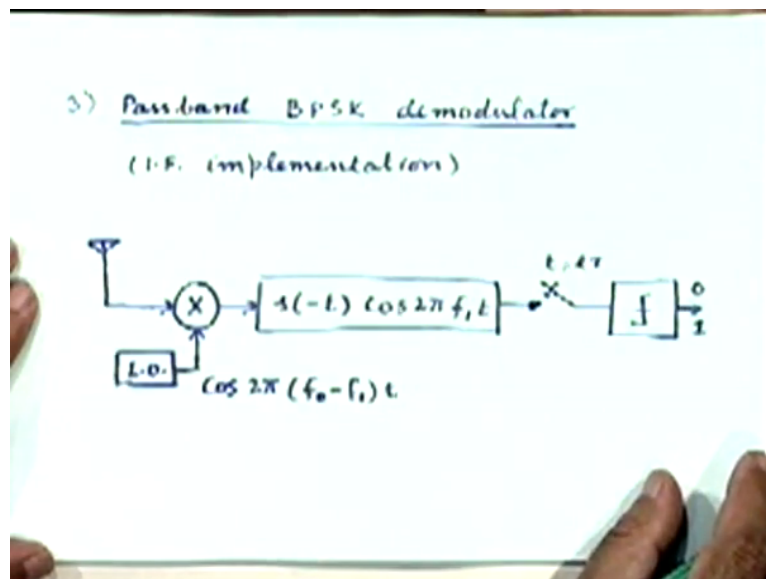 3) Passband BPSK demodulator
(I.F. implementation)
X
s(-t) cos 2π f₁t
0
1
L.O.
cos 2π (f₀-f₁) t